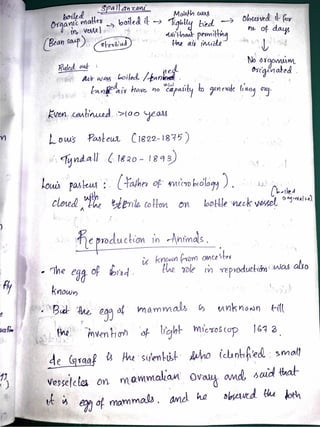 Spallanzani
boiled
Organic matter → boiled it → Tightly tied → Observed it for
in vessel
(Bean soup) (sterilised)
Mouth was
without permitting
the air inside
no of days
No organism
originated.
Ruled out :
Air was boiled /
air have no capasity to generate living org.
Even continued >100 years
Louis Pasteur (1822-1875)
Tyndall (1820-1893)
Louis pasteur : (father of microbiology).
closed with the sterile cotton on bottle neck vessel (boiled
Reproduction in Animals.
is known from ancestor
• The egg of bird. the role in reproduction was also
known
• But the egg of mammals is unknown till
the invention of light microscop 1673.
de Graaf is the scientist who identified small
vesselcles on mammalian ovary and said that
it is egg of mammals. and he observed the both